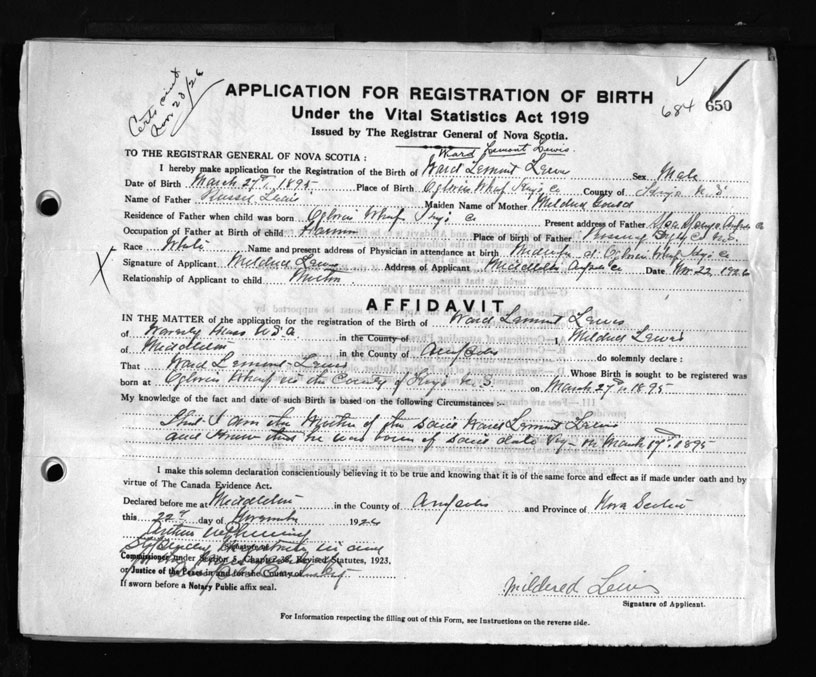 Nov 23/26
684 650
APPLICATION FOR REGISTRATION OF BIRTH
Under the Vital Statistics Act 1919
Issued by The Registrar General of Nova Scotia.
Ward Lemont Lewis.
TO THE REGISTRAR GENERAL OF NOVA SCOTIA :
I hereby make application for the Registration of the Birth of Ward Lemont Lewis Sex Male
Date of Birth March 27th 1895 Place of Birth Ogilvie Wharf Kings Co County of Kings N.S
Name of Father Lewis Maiden Name of Mother Mildred Gould
Residence of Father when child was born Ogilvie Wharf Kings Co Present address of Father
Occupation of Father at Birth of child Farmer Place of birth of Father
Race White Name and present address of Physician in attendance at birth Midwife at Ogilvie Wharf Kings Co
X Signature of Applicant Mildred Lewis Address of Applicant Middleton Date Nov. 22 1926
Relationship of Applicant to child Mother
AFFIDAVIT
IN THE MATTER of the application for the registration of the Birth of Ward Lemont Lewis
of Waverly Mass U.S.A. in the County of I, Mildred Lewis
of Middleton in the County of Annapolis do solemnly declare :
That Ward Lemont Lewis Whose Birth is sought to be registered was
born at Ogilvie Wharf in the County of Kings N.S. on March 27th 1895
My knowledge of the fact and date of such Birth is based on the following Circumstances :-
That I am the Mother of the said Ward Lemont Lewis
and know that he was born of said date on March 1895
I make this solemn declaration conscientiously believing it to be true and knowing that it is of the same force and effect as if made under oath and by
virtue of The Canada Evidence Act.
Declared before me at Middleton in the County of Annapolis and Province of Nova Scotia
this 22nd day of November 1926
Arthur
Stipendiary Magistrate in and
Commissioner under Section 5, Chapter 38, Revised Statutes, 1923.
or Justice of the Peace in and for the County of
If sworn before a Notary Public affix seal.
Mildered Lewis
Signature of Applicant.
For Information respecting the filling out of this Form, see Instructions on the reverse side.